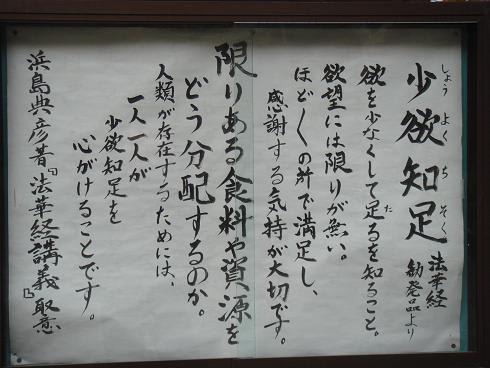 少欲知足 法華経勧発品より
しょうよくちそく
欲を少なくして足るを知ること。
た
欲望には限りが無い。
ほど〱の所で満足し、
感謝する気持が大切です。
限りある食料や資源を
どう分配するのか。
人類が存在するためには、
一人一人が
少欲知足を
心がけることです。
浜島典彦著『法華経講義』取意